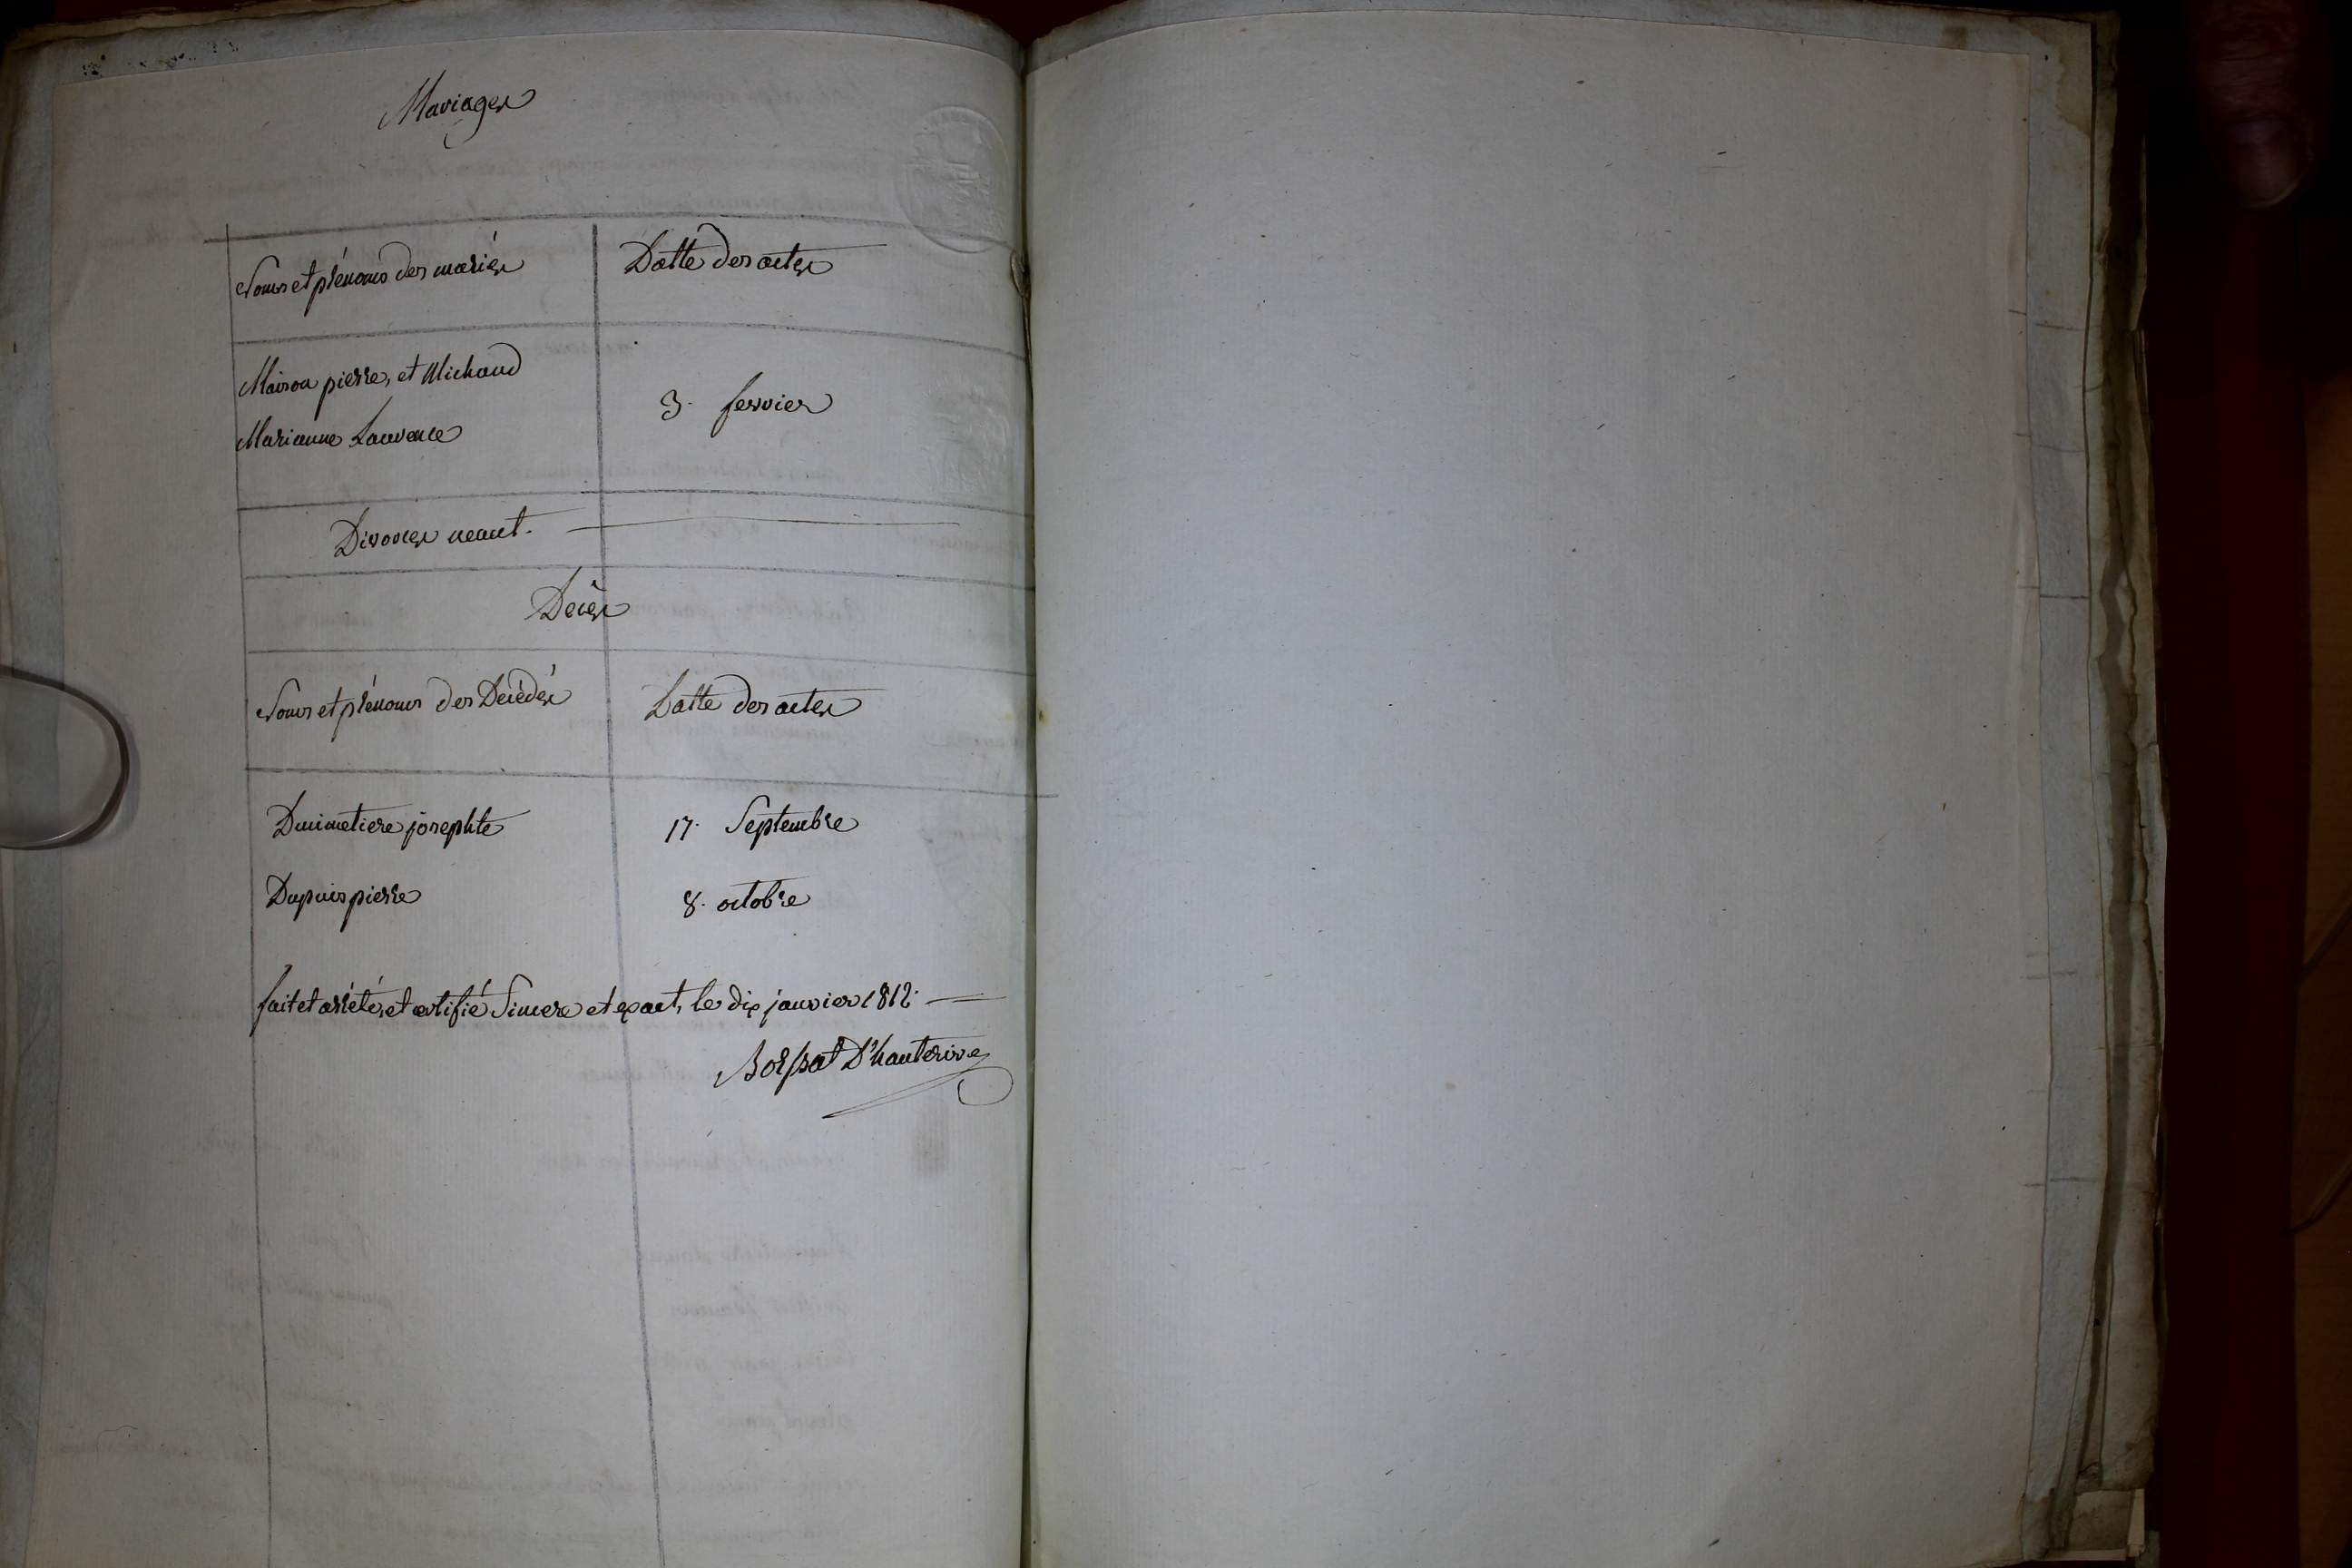 Mariages
Noms et prénoms des mariés Datte des actes
Maison pierre, et Michaud
Marianne Laurence
3. fevrier
Divorces neant.
Décès
Noms et prénoms des Décédés Datte des actes
Dumetiere josephte 17. Septembre
Dupuis pierre 8. octobre
fait et arrêté, et certifié Sincere et exact, le dix janvier 1812.
Boissat D'hauterive